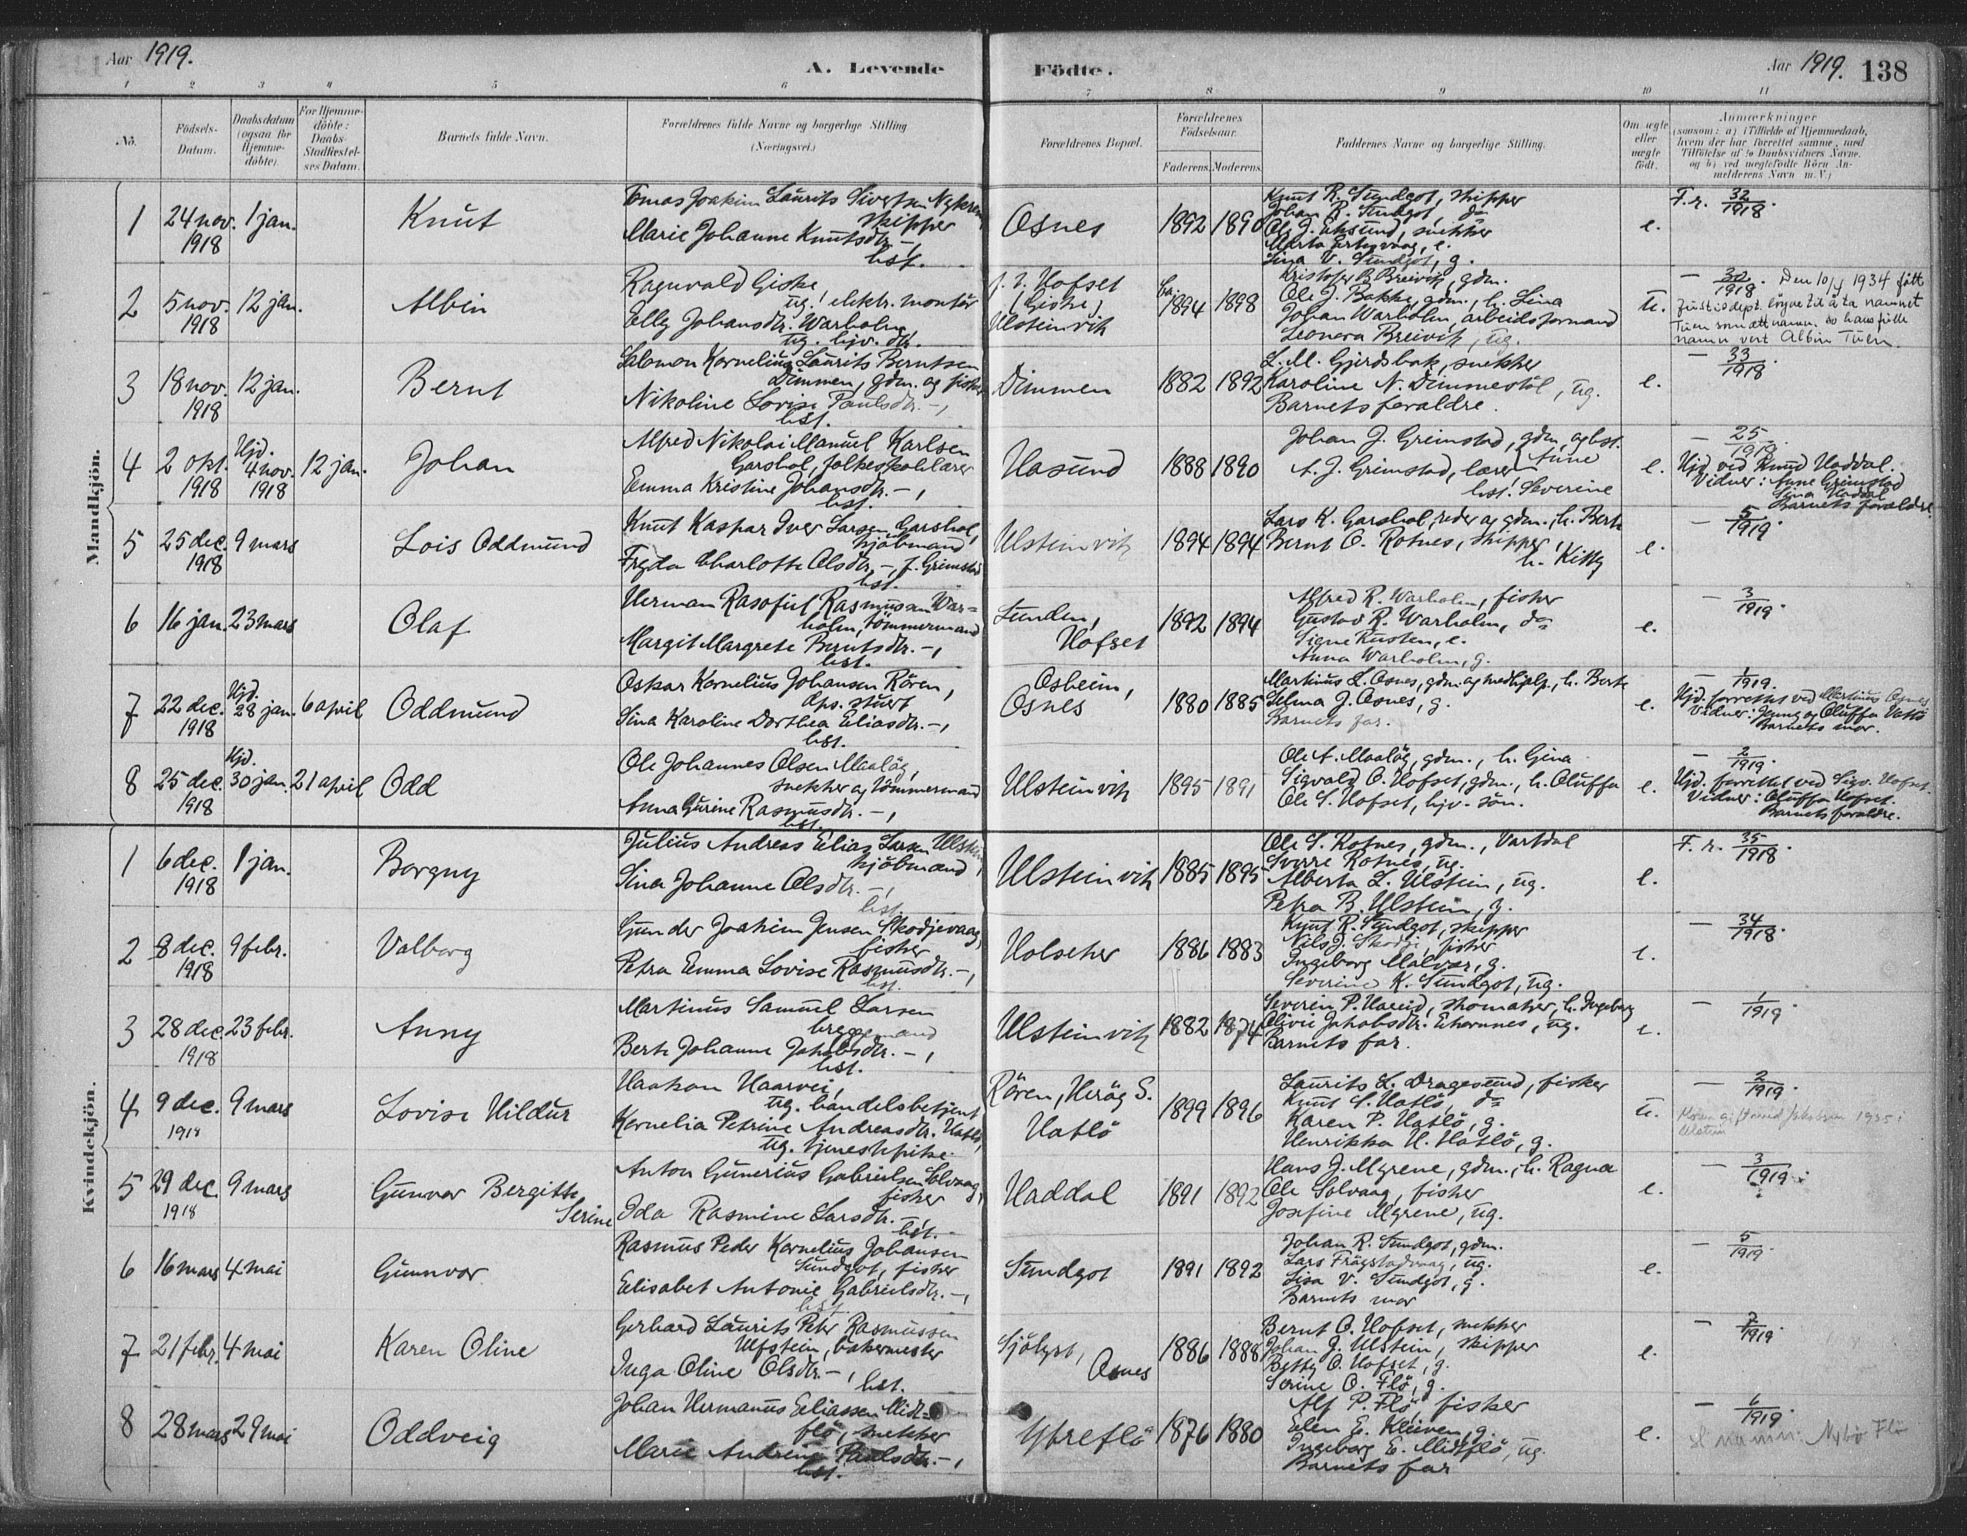 Aar 1919.
A. Levende
Födte.
Aar 1919. 138
1 2 3 4 5 6 7 8 9 10 11
No.
Födsels-Datum.
Daabsdatum (ogsaa for Hjemme-döbte).
For Hjemme-döbte: Daabs-Stadfæstel-ses Datum.
Barnets fulde Navn.
Forældrenes fulde Navne og borgerlige Stilling (Næringsvei.)
Forældrenes Bopæl.
Forældrenes Födselsaar.
Faderens. Moderens.
Faddernes Navne og borgerlige Stilling.
Om ægte eller uægte födt.
Anmærkninger
(saasom: a) i Tilfælde af Hjemmedaab, hvem der har forrettet samme, med Tilföielse af 2 Daabsvidners Navne, og b) ved uægtefödte Börn An-melderens Navn m. V.)
Mandkjön.
1 24 nov. 1918
1 jan.
Knut
Tomas Joakim Laurits Sivertsen
skipper
Marie Johanne Knutsdtr. –,
hst.
Osnes
1892 1890
Knut R. Sundgot, skipper
Johan R. Sundgot, do
Ole J. Eksund, snekker
Sina V. Sundgot, g.
e.
F. r. 32/1918.
2 5 nov. 1918
12 jan.
Albin
Ragnvald Giske
ug. elektr. montör
Elly Johansdtr. Warholm,
ug. hjv. dtr.
f. t. Hofset
(Giske)
Ulsteinvik
1894 1898
Kristofer B. Breivik, gdm.
Ole J. Bakke, gdm., h. Lina
Johan Warholm, arbeidsformand
Leonora Breivik, ug.
u.
– 32/1918. Den 10/7 1934 fått
justisdept. löyve til å ta namnet
Tuen som ættnamn, so hans fulle
namn vert Albin Tuen.
3 18 nov. 1918
12 jan.
Bernt
Salomon Kornelius Laurits Berntsen
Dimmen, gdm. og fisker
Nikoline Lovise Paulsdtr. –,
hst.
Dimmen
1882 1892
L. M. Gjerdsbak, snekker
Karoline N. Dimmestöl, ug.
Barnets foraldre.
e.
– 33/1918.
4 2 okt. 1918
Hjd. 4 nov. 1918
12 jan.
Johan
Alfred Nikolai Manuel Karlsen
Garshol, folkeskolelærer
Emma Kristine Johansdtr. –,
hst.
Hasund
1888 1890
Johan J. Grimstad, gdm. og hst.
A. J. Grimstad, lærer Anne
hst. Severine
e.
– 25/1918.
Hjd ved Knud Haddal.
Vidner: Anne Grimstad
Lina Haddal
Barnets forældre.
5 25 dec. 1918
9 mars
Lois Oddmund
Knut Kaspar Iver Larsen Garshol,
kjöbmand
Frida Charlotte Olsdtr. –, f. Grimstad
hst.
Ulsteinvik
1894 1894
Lars K. Garshol, reder og gdm., h. Berte
Bernt O. Rotnes, skipper,
h. Kitty
e.
– 5/1919.
6 16 jan.
23 mars
Olaf
Herman Rasmussen War-
holm, tömmermand
Margit Margrete Berntsdtr. –,
hst.
Sunden,
Hofset
1892 1894
Alfred R. Warholm, fisker
Gustav R. Warholm, do
Signe Rusten, e.
Anna Warholm, g.
e.
– 3/1919.
7 22 dec. 1918
Hjd. 28 jan.
6 april
Oddmund
Oskar Kornelius Johansen Rören,
dps. stuert
Sina Karoline Dorthea Eliasdtr. –,
hst.
Osheim,
Osnes
1880 1885
Martinus L. Osnes, gdm og medhjelp., h. Berte
Selma J. Osnes, g.
Barnets far.
e.
– 1/1919.
Hjd. forrettet ved Martinus Osnes
Vidner: Jenny og Oluffa Hatlö
Barnets mor.
8 25 dec. 1918
Hjd. 30 jan.
21 april
Odd
Ole Johannes Olsen Maalög,
snekker og tömmermand
Anna Gurine Rasmusdtr. –,
hst.
Ulsteinvik
1895 1891
Ole A. Maalög, gdm., h. Gina
Sigvald O. Hofset, gdm., h. Oluffa
Ole S. Hofset, hjv. sön.
e.
– 2/1919.
Hjd. forrettet ved Sigv. Hofset.
Vidner: Oluffa Hofset.
Barnets forældre.
Kvindekjön.
1 6 dec. 1918
1 jan.
Borgny
Julius Andreas Elias Larsen Ulstein,
kjöbmand
Sina Johanne Olsdtr. –,
hst.
Ulsteinvik
1885 1895
Ole S. Rotnes, gdm., Vartdal
Sverre Rotnes, ug.
Alberta L. Ulstein, ug.
Petra B. Ulstein, g.
e.
F. r. 35/1918.
2 8 dec. 1918
9 febr.
Valborg
Gunder Joakim Jensen Skodjevaag,
fisker
Petra Emma Lovise Rasmusdtr. –,
hst.
Holseker
1886 1883
Knut R. Sundgot, skipper
Nils J. Skodje, fisker
Ingeborg Malvar, g.
Severine K. Sundgot, ug.
e.
– 34/1918.
3 28 dec. 1918
23 febr.
Anny
Martinus Samuel Larsen
bryggemand
Berte Johanne Jakobsdtr. –,
hst.
Ulsteinvik
1882 1874
Severin P. Hareid, skomaker, h. Ingeborg
Olivie Jakobsdtr. Ekornnes, ug.
Barnets far.
e.
– 1/1919
4 9 dec. 1918
9 mars
Lovise Hildur
Haakon Haarvei,
ug. handelsbetjent
Kornelia Petrine Andreasdtr. Hatlö,
ug. tjenestpike.
Rören, Heröy S.
Hatlö
1899 1896
Laurits L. Dragesund, fisker
Knut S. Hatlö, do
Karen P. Hatlö, g.
Henrikka H. Hatlö, g.
u.
– 2/1919.
5 29 dec. 1918
9 mars
Gunvor Bergitte
Serine
Anton Gunerius Gabrielsen Solvaag,
fisker
Ida Rasmine Larsdtr. –
hst.
Haddal
1891 1892
Hans J. Myrene, gdm., h. Ragna
Ole Solvaag, fisker
Josefine Myrene, ug.
e.
– 3/1919.
6 16 mars
4 mai
Gunnvor
Rasmus Peder Kornelius Johansen
Sundgot, fisker
Elisabet Antonie Gabrielsdtr. –,
hst.
Sundgot
1891 1892
Johan R. Sundgot, gdm.
Lars Frögstadvaag, ug.
Lisa V. Sundgot, g.
Barnets mor
e.
– 5/1919.
7 21 febr.
4 mai
Karen Oline
Gerhard Laurits Peter Rasmussen
Ulfstein, bakermester
Inga Oline Olsdtr –,
hst.
Sjölyst,
Osnes
1886 1888
Bernt O. Hofset, snekker
Johan J. Ulstein, skipper
Betty O. Hofset, g.
Serine O. Flö, g.
e.
– 7/1919.
8 28 mars
29 mai
Oddveig
Johan Hermanus Eliassen Midt-
flö, snekker
Marie Andrine Paulsdtr. –,
hst.
Ytreflö
1876 1880
Alf P. Flö, fisker
Elen E. Kleiven, g.
Ingeborg E. Midtflö, ug.
Barnets far
e.
– 6/1919.
namn: Nybö Flö